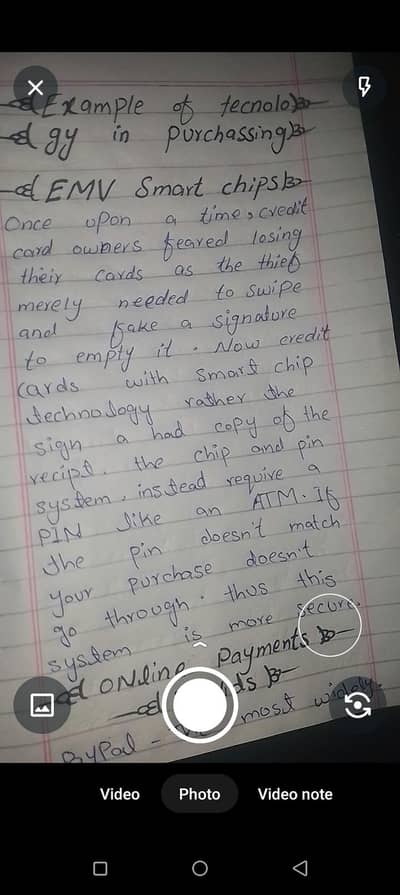 Example of tecnolo
gy in purchassing
EMV Smart chips
Once upon a time, credit
card owners feared losing
their cards as the thief
merely needed to swipe
and fake a signature
to empty it. Now credit
cards with Smart chip
technology rather the
sign a had copy of the
recipt. the chip and pin
system, instead require a
PIN like an ATM. If
the pin doesn't match
your purchase doesn't
go through. thus this
system is more secure.
ONline Payments
most widely
Video
Photo
Video note